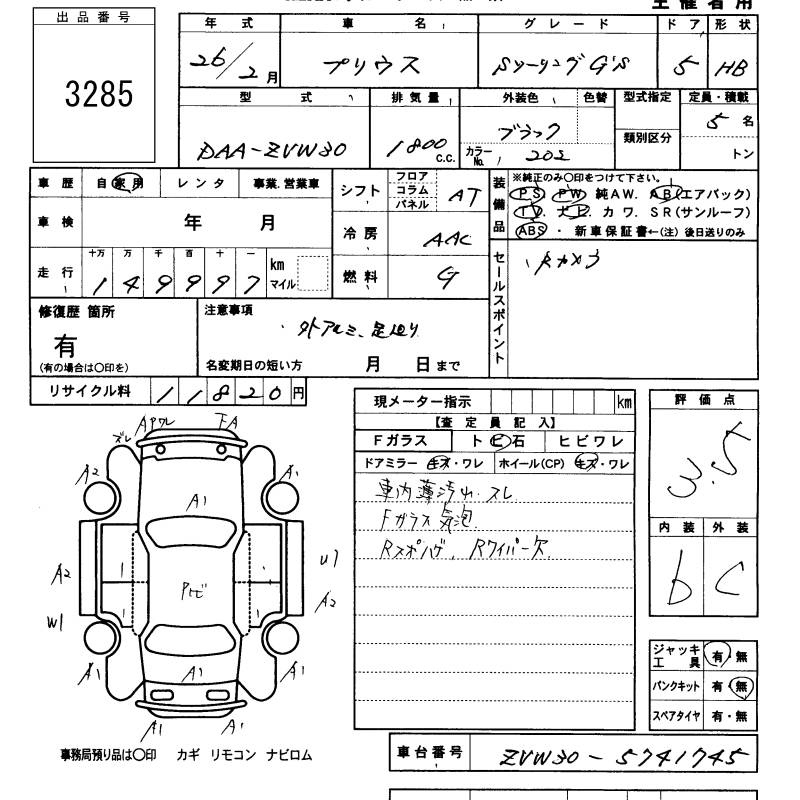 主催者用
出品番号
3285
年式 車名 グレード ドア 形状
26/2月 プリウス Sツーリング G'S 5 HB
型式 排気量 外装色 色替 型式指定 定員・積載
DAA-ZVW30 1800 C.C. ブラック カラーNo. 202 類別区分 5名
トン
車歴 自家用 レンタ 事業、営業車
シフト フロア コラム パネル AT
車検 年 月
冷房 AAC
走行 十万 万 千 百 十 一 km マイル
149997
燃料 G
装備品
※純正のみ〇印をつけて下さい。
PS PW 純AW. AB(エアバック)
TV. ナビ. カワ. SR(サンルーフ)
ABS ・ 新車保証書←(注) 後日送りのみ
セールスポイント
Rカメラ
修復歴 箇所
有
(有の場合は〇印を)
注意事項
・外アルミ、足廻り
名変期日の短い方 月 日まで
リサイクル料 11820円
現メーター指示 km
【査定員記入】
Fガラス トビ石 ヒビワレ
ドアミラー キズ・ワレ ホイール(CP) キズ・ワレ
車内薄汚れ スレ
Fガラス気泡
Rスポハゲ、Rワイパー欠
評価点
3.5
内装 外装
b C
ジャッキ工具 有・無
パンクキット 有・無
スペアタイヤ 有・無
Aワレ FA
ズレ
A2 A1
A1
A2 U1
Pトビ
A2
W1
A1 A1 A1
A1 A1
事務局預り品は〇印 カギ リモコン ナビロム
車台番号 ZVW30-5741745